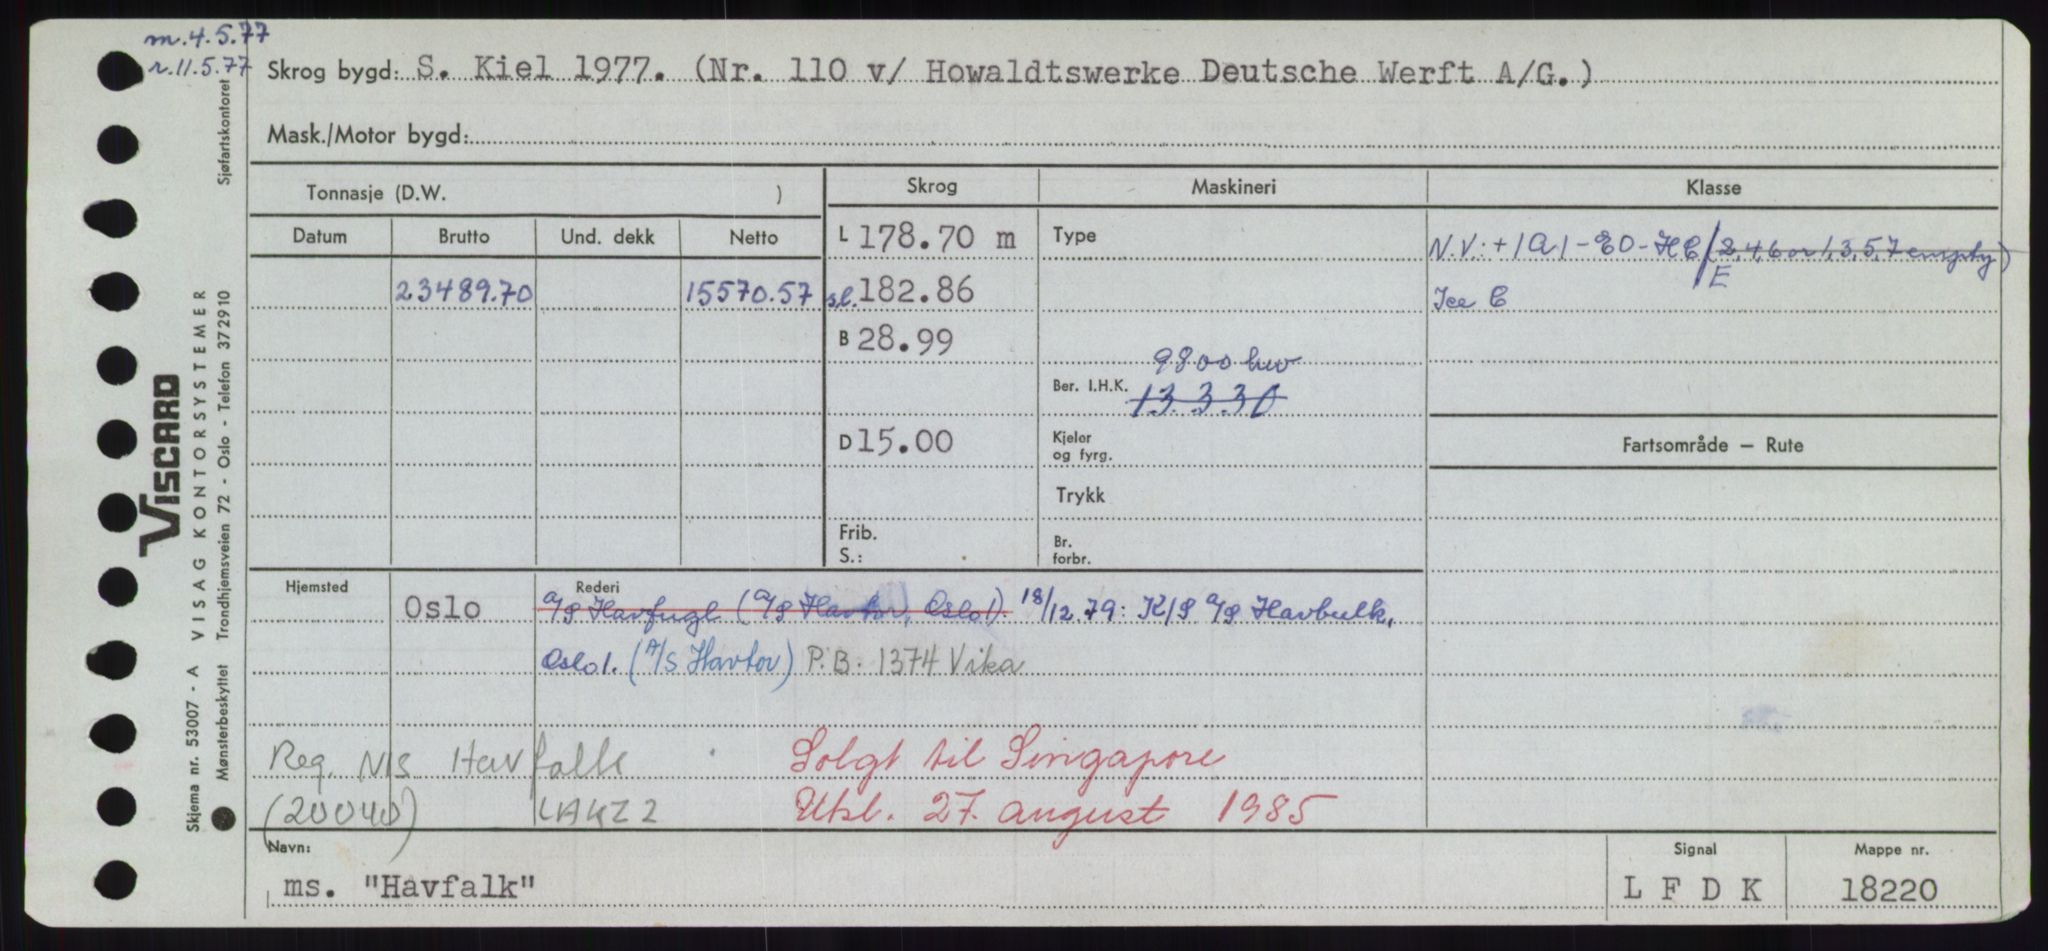 m. 4.5.77
r. 11.5.77
Skrog bygd: S. Kiel 1977. (Nr. 110 v/ Howaldtswerke Deutsche Werft A/G.)
Mask./Motor bygd:
Tonnasje (D.W. )
Skrog
Maskineri
Klasse
Datum
Brutto
Und. dekk
Netto
23489.70
15570.57
L 178.70 m
sl. 182.86
B 28.99
D 15.00
Frib.
S.:
Type
9800 hw
Ber. I.H.K. 13330
Kjeler
og fyrg.
Trykk
Br.
forbr.
N.V.: +1A1-E0-HC/(2,4,6 or 1,3,5,7 empty)
E
Ice C
Fartsområde — Rute
Hjemsted
Oslo
Rederi
A/S Havfugl (A/S Havtor, Oslo 1). 18/12.79: K/S A/S Havbulk,
Oslo 1. (A/S Havtor) P.B. 1374 Vika
Reg. NIS Havfalk
(20040) LAKZ2
Solgt til Singapore
Utsl. 27. august 1985
Navn:
ms. "Havfalk"
Signal
L F D K
Mappe nr.
18220
VISCARD
Skjema nr. 53007 - A VISAG KONTORSYSTEMER
Mønsterbeskyttet Trondhjemsveien 72 - Oslo - Telefon 372910
Sjøfartskontoret